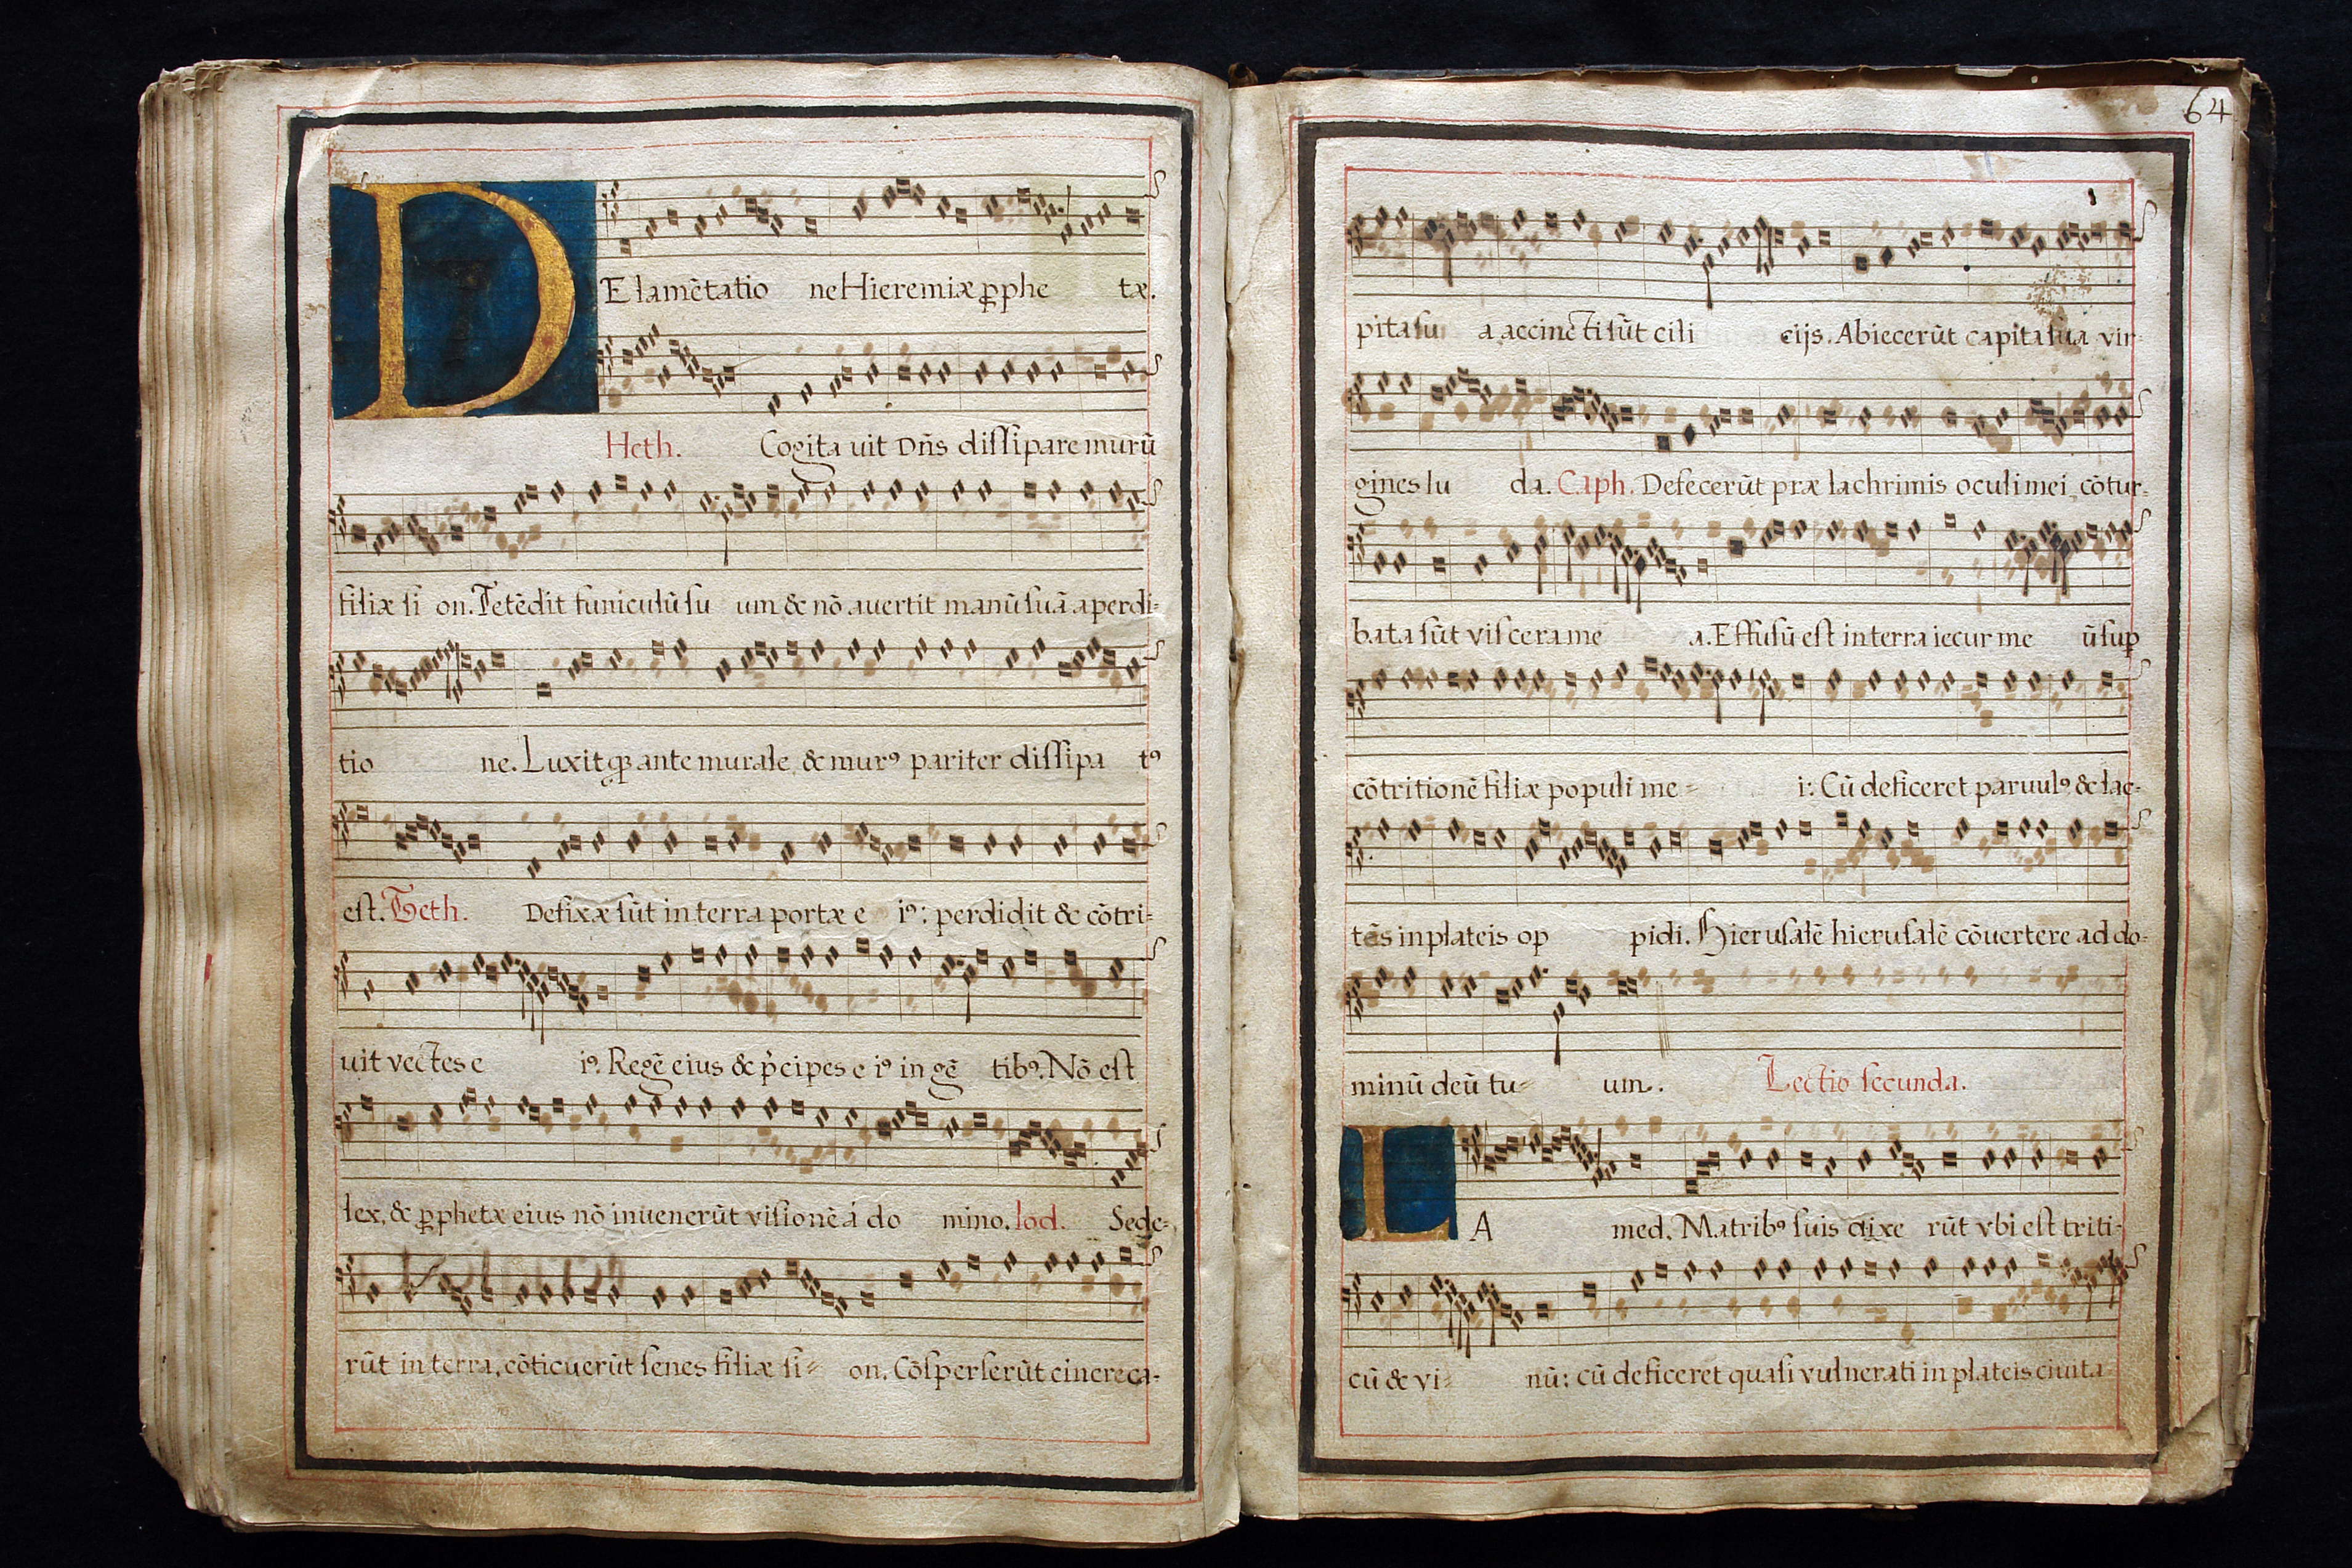 DE lamẽtatio ne Hieremiæ ꝓphe tæ.
Heth. Cogita uit Dñs dissipare murũ
filiæ si on. Tetẽdit funiculũ su um & nõ auertit manũ suã a perdi-
tio ne. Luxitqꝫ ante murale, & murꝰ pariter dissipa tꝰ
est. Teth. Defixæ sũt in terra portæ e iꝰ: perdidit & cõtri-
uit vectes e iꝰ. Regẽ eius & p̾cipes e iꝰ in gẽ tibꝰ. Nõ est
lex, & ꝓphetæ eius nõ inuenerũt visionẽ á do mino. Iod. Sede-
rũt in terra, cõticuerũt senes filiæ si- on. Cõsperserũt cinere ca-
64
pita su a, accincti sũt cili cijs. Abiecerũt capita sua vir-
gines Iu da. Caph. Defecerũt præ lachrimis oculi mei, cõtur-
bata sũt viscera me a. Effusũ est in terra iecur me ũ suꝑ
cõtritionẽ filiæ populi me- i: Cũ deficeret paruulꝰ & lac-
tẽs in plateis op pidi. Hierusalẽ hierusalẽ cõuertere ad do-
minũ deũ tu- um. Lectio secunda.
LA med. Matribꝰ suis dixe rũt vbi est triti-
cũ & vi- nũ: cũ deficeret quasi vulnerati in plateis ciuita